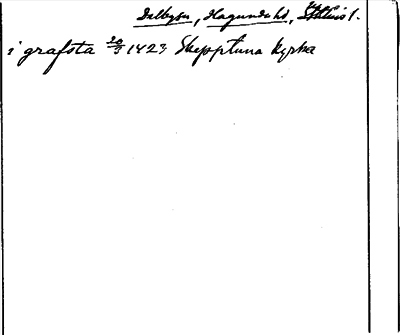 Dalbysn, Hagunda hd, Sthlms l.
i grafsta 20/3 1423 Skepptuna kyrka